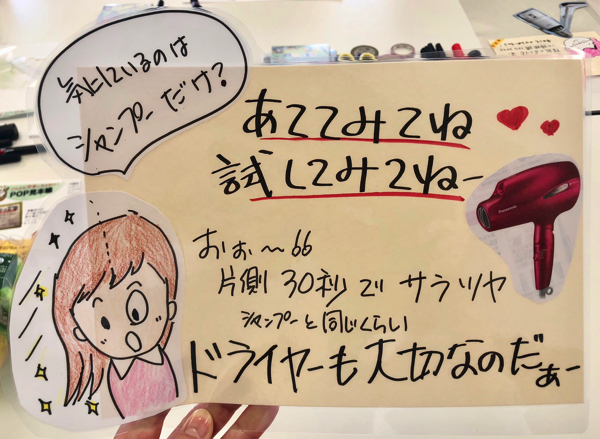 気にしているのは
シャンプーだけ?
あててみてね
試してみてねー
おぉ〜66
片側30秒でサラツヤ
シャンプーと同じくらい
ドライヤーも大切なのだぁー
Panasonic
POP見本帳